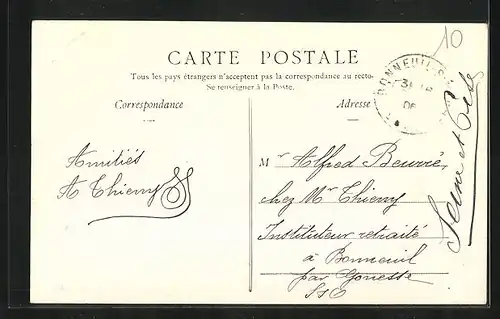 10
CARTE POSTALE
Tous les pays étrangers n'acceptent pas la correspondance au recto.
Se renseigner à la Poste.
Correspondance
Adresse
BONNEUIL
Amitiés
A Thierry
Mr Alfred Beurré,
chez Mr Thierry
Instituteur retraité
à Bonneuil
par Gonesse
S&O
Seine et Oise